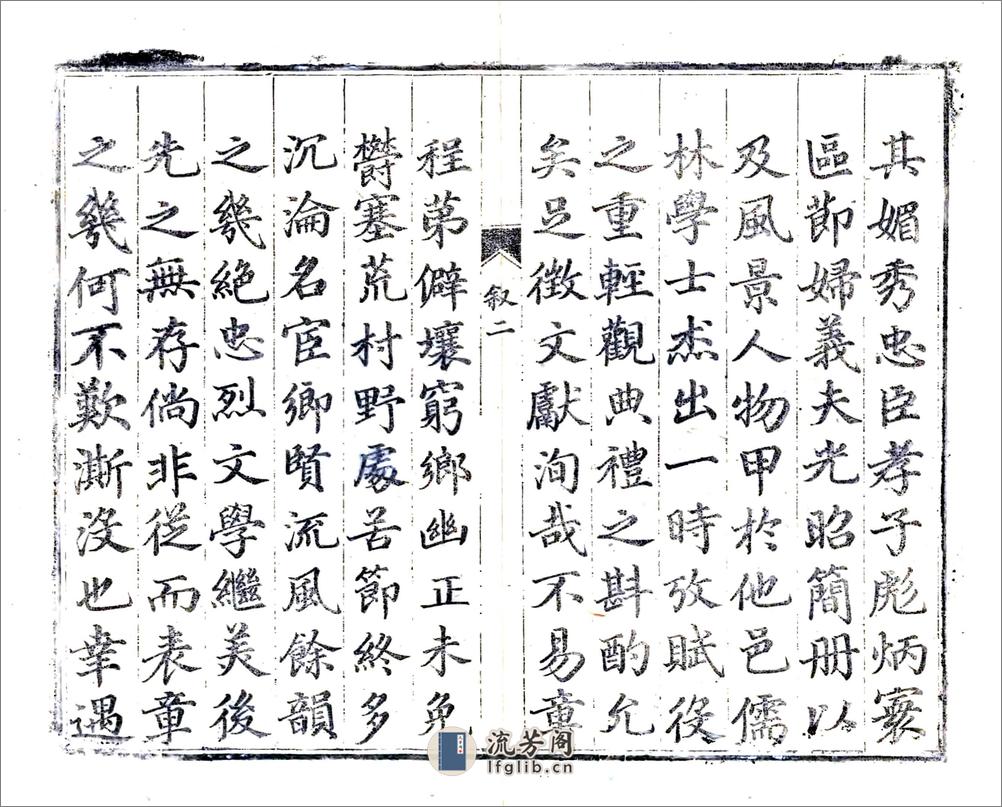 其媚秀忠臣孝子彪炳寰
區節婦義夫光昭簡冊以
及風景人物甲於他邑儒
林學士杰出一時攷賦役
之重輕觀典禮之斟酌允
矣足徵文獻洵哉不易童
叙二
程苐僻壤窮鄉幽正未免
欝塞荒村野處苦節終多
沉淪名宦鄉賢流風餘韻
之幾絕忠烈文學繼美後
先之無存倘非從而表章
之幾何不歎澌沒也幸遇
流芳阁
lfglib.cn